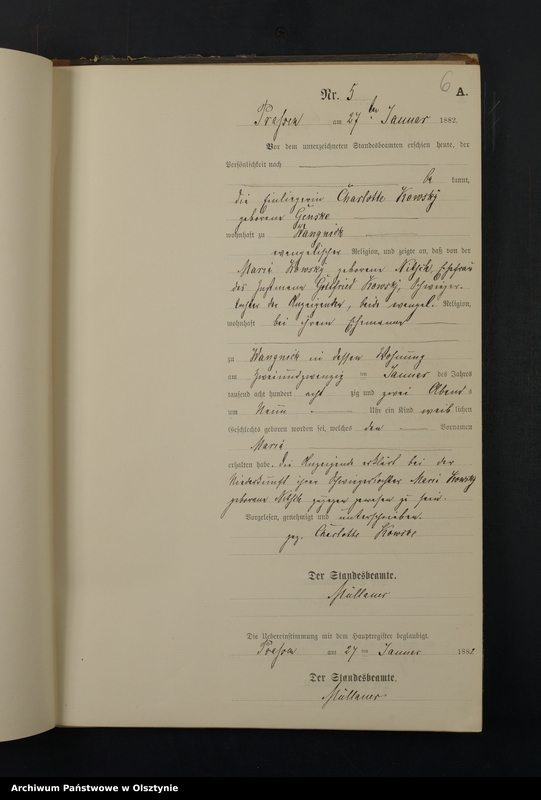 6
Nr. 5 A.
am 27ten Januar 1882.
Vor dem unterzeichneten Standesbeamten erschien heute, der
Persönlichkeit nach
be kannt,
die Einliegerin Charlotte Kowsky
geborene Genske
wohnhaft zu Wangnick
evangelischer Religion, und zeigte an, daß von der
Marie Kowsky geborene Nitsch, Ehefrau
des Instmann Gottfried Kowsky, Schwieger-
tochter der Anzeigenden, beide evangel. Religion,
wohnhaft bei ihrem Ehemanne
zu Wangnick in dessen Wohnung
am zweiundzwanzig ten Januar des Jahres
tausend acht hundert acht zig und zwei Abend s
um Neun Uhr ein Kind weib lichen
Geschlechts geboren worden sei, welches den Vornamen
Marie
erhalten habe. Die Anzeigende erklärt bei der
Niederkunft ihrer Schwiegertochter Marie Kowsky
geborene Nitsch zugegen gewesen zu sein.
Vorgelesen, genehmigt und unterschrieben.
gez. Charlotte Kowske
Der Standesbeamte.
Die Uebereinstimmung mit dem Hauptregister beglaubigt.
am 27 ten Januar 1882
Der Standesbeamte.
Archiwum Państwowe w Olsztynie